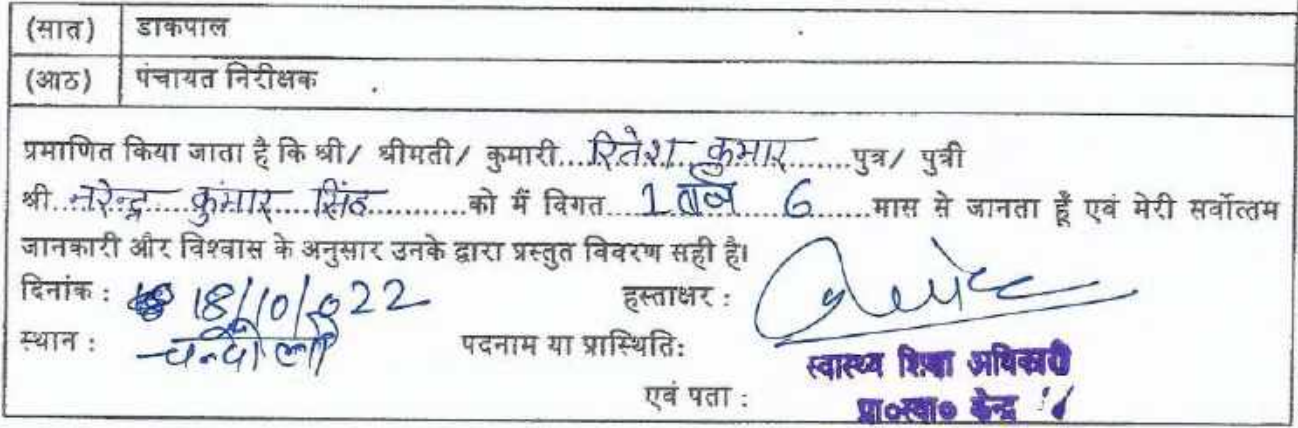 (सात) डाकपाल
(आठ) पंचायत निरीक्षक
प्रमाणित किया जाता है कि श्री/ श्रीमती/ कुमारी...रितेश कुमार.......पुत्र/ पुत्री
श्री...नरेन्द्र.....कुमार....सिंह............को मैं विगत....1.......6......मास से जानता हूँ एवं मेरी सर्वोत्तम
जानकारी और विश्वास के अनुसार उनके द्वारा प्रस्तुत विवरण सही है।
दिनांक : 18/10/022 हस्ताक्षर :
स्थान : चन्दौली पदनाम या प्रास्थिति:
स्वास्थ्य शिक्षा अधिकारी
एवं पता : प्रा०स्वा० केन्द्र